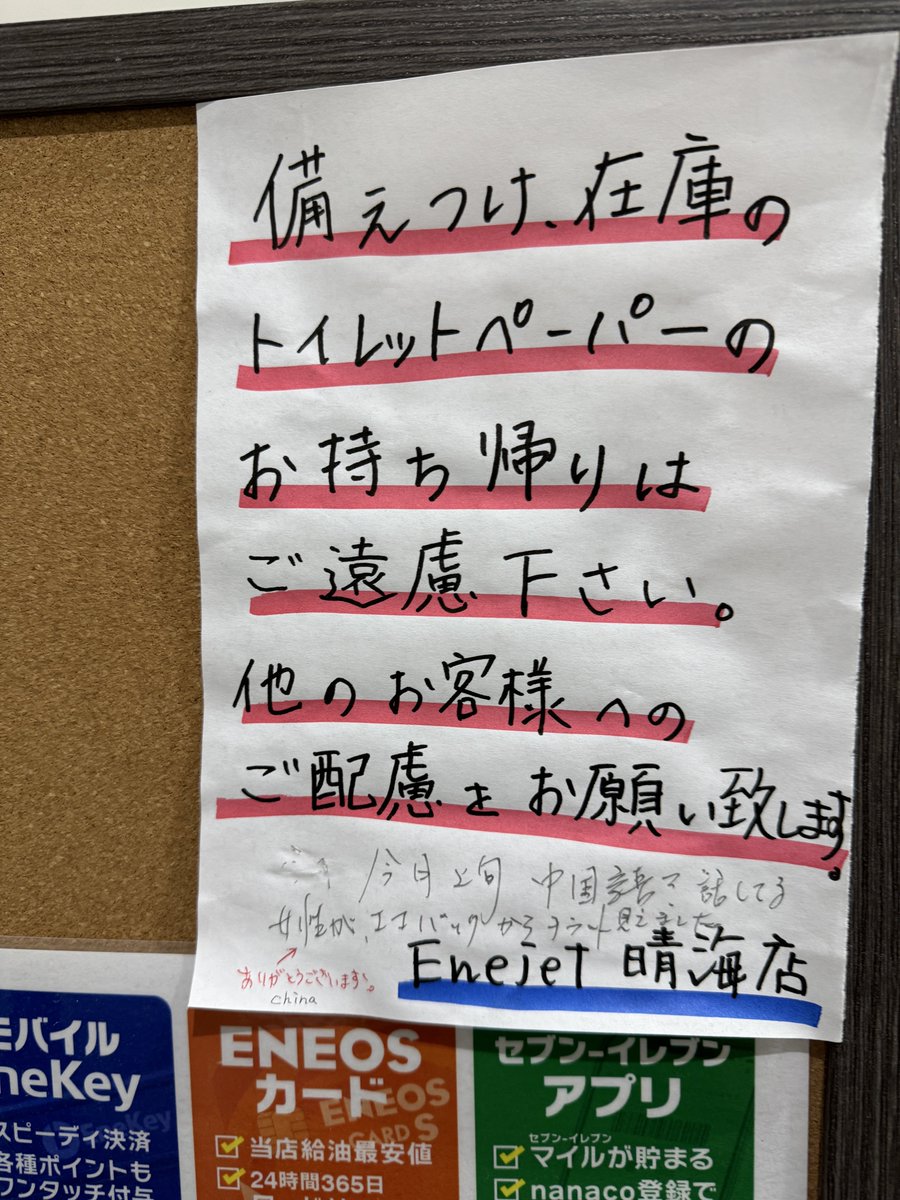 備えつけ、在庫の
トイレットペーパーの
お持ち帰りは
ご遠慮下さい。
他のお客様への
ご配慮をお願い致します。
今月上旬 中国語で話してる
女性が、エコバックからチラット見えました
ありがとうございます。
china
Enejet 晴海店
モバイル
neKey
スピーディ決済
各種ポイントも
ワンタッチ付与
ENEOS
カード
ENEOS
CARD S
当店給油最安値
24時間365日
セブン-イレブン
アプリ
セブン-イレブン
マイルが貯まる
nanaco登録で